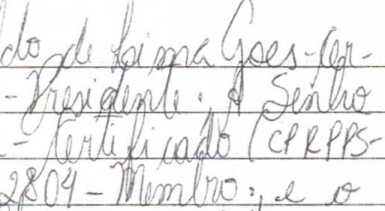 do de Lima Goes-Cer-
- Presidente. A Senho
- Certificado (CPRPPS-
2804 - Membro; e o